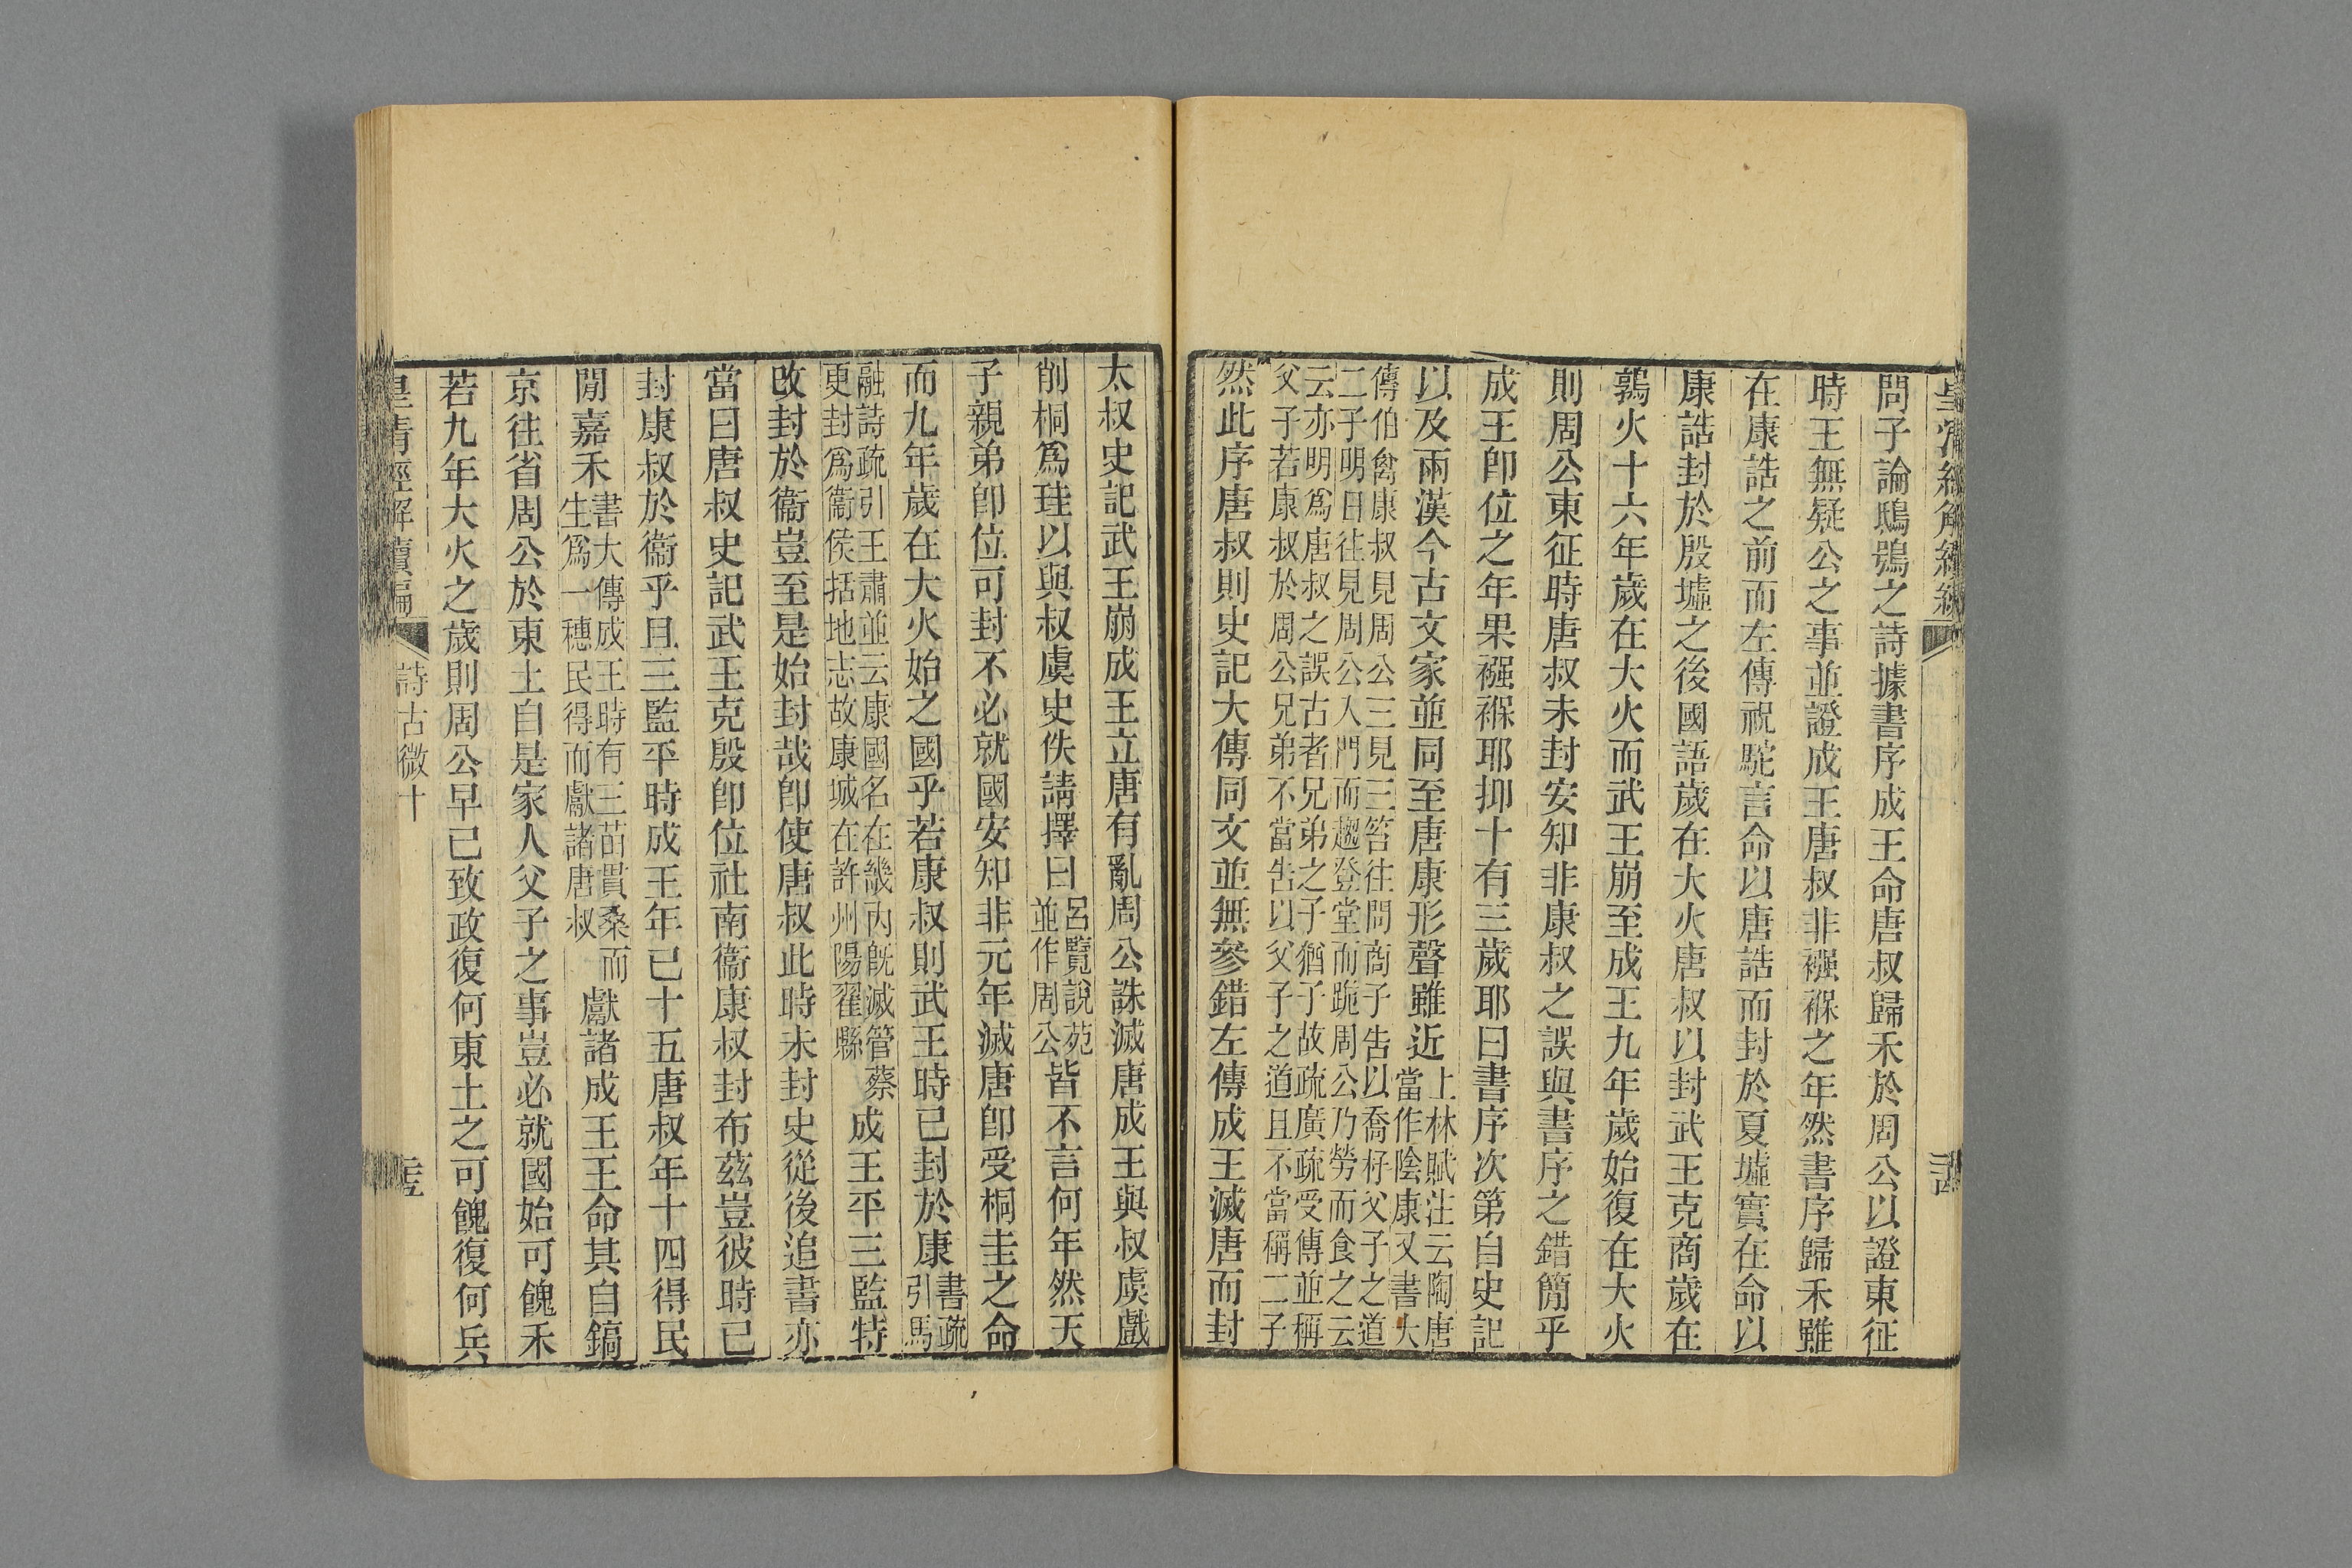 皇清經解續編
問子論鴟鴞之詩據書序成王命唐叔歸禾於周公以證東征
時王無疑公之事並證成王唐叔非襁褓之年然書序歸禾雖
在康誥之前而左傳祝駝言命以唐誥而封於夏墟實在命以
康誥封於殷墟之後國語歲在大火唐叔以封武王克商歲在
鶉火十六年歲在大火而武王崩至成王九年歲始復在大火
則周公東征時唐叔未封安知非康叔之誤與書序之錯簡乎
成王卽位之年果襁褓耶抑十有三歲耶曰書序次第自史記
以及兩漢今古文家並同至唐康形聲雖近上林賦注云陶唐
當作陰康又書大
傳伯禽康叔見周公三見三笞往問商子告以喬梓父子之道
二子明日往見周公入門而趨登堂而跪周公乃勞而食之云
云亦明爲唐叔之誤古者兄弟之子猶子故疏廣疏受傳並稱
父子若康叔於周公兄弟不當告以父子之道且不當稱二子
然此序唐叔則史記大傳同文並無參錯左傳成王滅唐而封
太叔史記武王崩成王立唐有亂周公誅滅唐成王與叔虞戲
削桐爲珪以與叔虞史佚請擇日呂覽說苑
並作周公皆不言何年然天
子親弟卽位可封不必就國安知非元年滅唐卽受桐圭之命
而九年歲在大火始之國乎若康叔則武王時已封於康書疏
引馬
融詩疏引王肅並云康國名在畿內旣滅管蔡
更封爲衞侯括地志故康城在許州陽翟縣成王平三監特
改封於衞豈至是始封哉卽使唐叔此時未封史從後追書亦
當曰唐叔史記武王克殷卽位社南衞康叔封布茲豈彼時已
封康叔於衞乎且三監平時成王年已十五唐叔年十四得民
閒嘉禾書大傳成王時有三苗貫桑而
生爲一穗民得而獻諸唐叔獻諸成王王命其自鎬
京往省周公於東土自是家人父子之事豈必就國始可餽禾
若九年大火之歲則周公早已致政復何東土之可餽復何兵
皇清經解續編
詩古微十